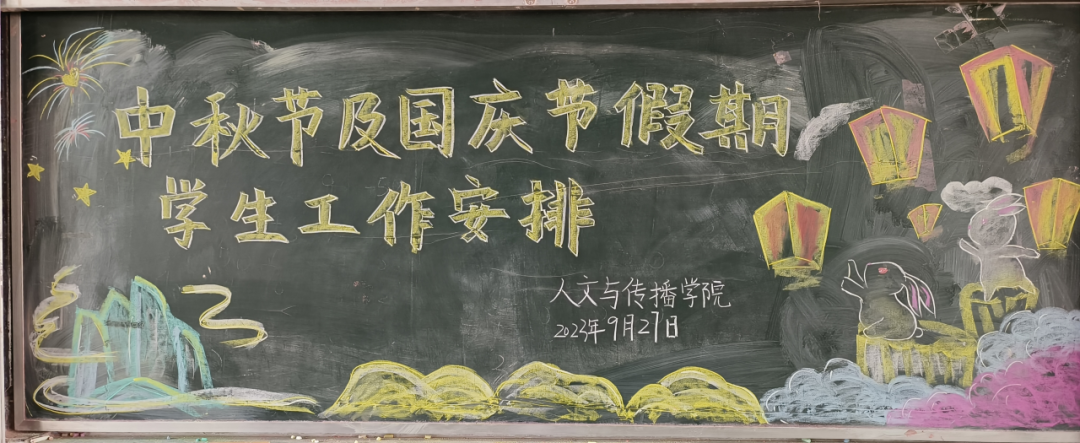 中秋节及国庆节假期
学生工作安排
人文与传播学院
2023年9月27日